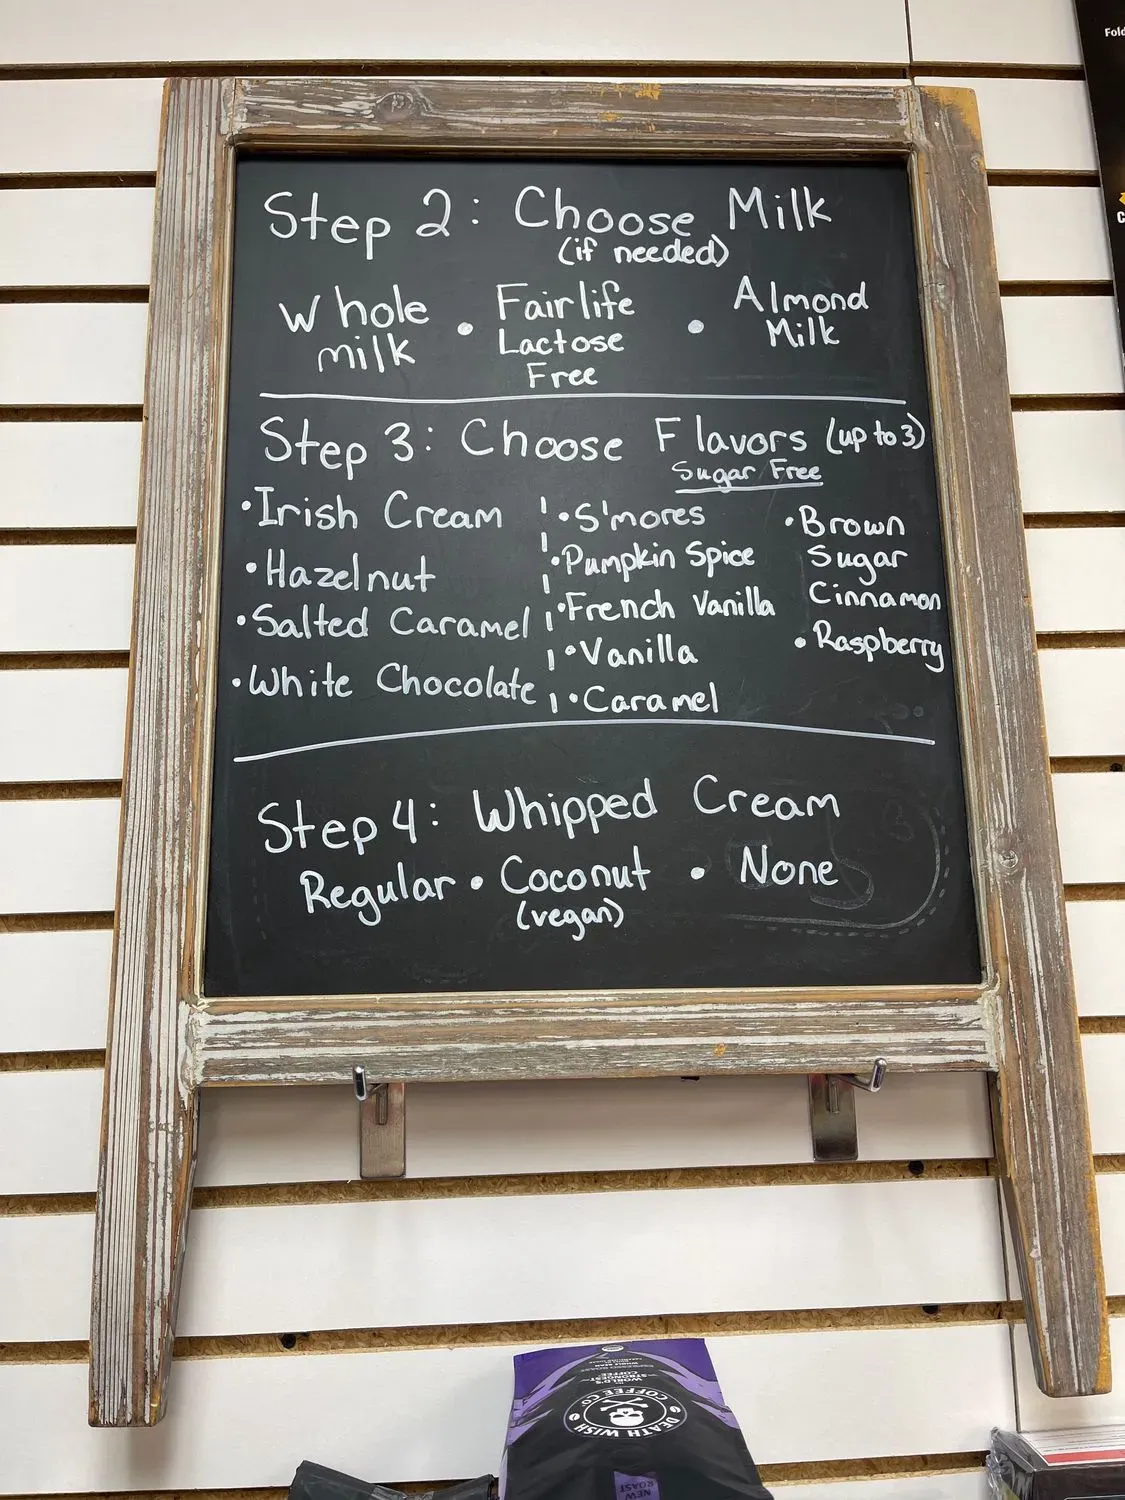 Step 2: Choose Milk
(if needed)
Whole milk • Fairlife Lactose Free • Almond Milk
Step 3: Choose Flavors (up to 3)
Sugar Free
• Irish Cream
• Hazelnut
• Salted Caramel
• White Chocolate
• S'mores
• Pumpkin Spice
• French Vanilla
• Vanilla
• Caramel
• Brown
Sugar
Cinnamon
• Raspberry
Step 4: Whipped Cream
Regular • Coconut • None
(vegan)
WORLD'S
STRONGEST
COFFEE
DEATH WISH
COFFEE CO.
NEW
ROAST